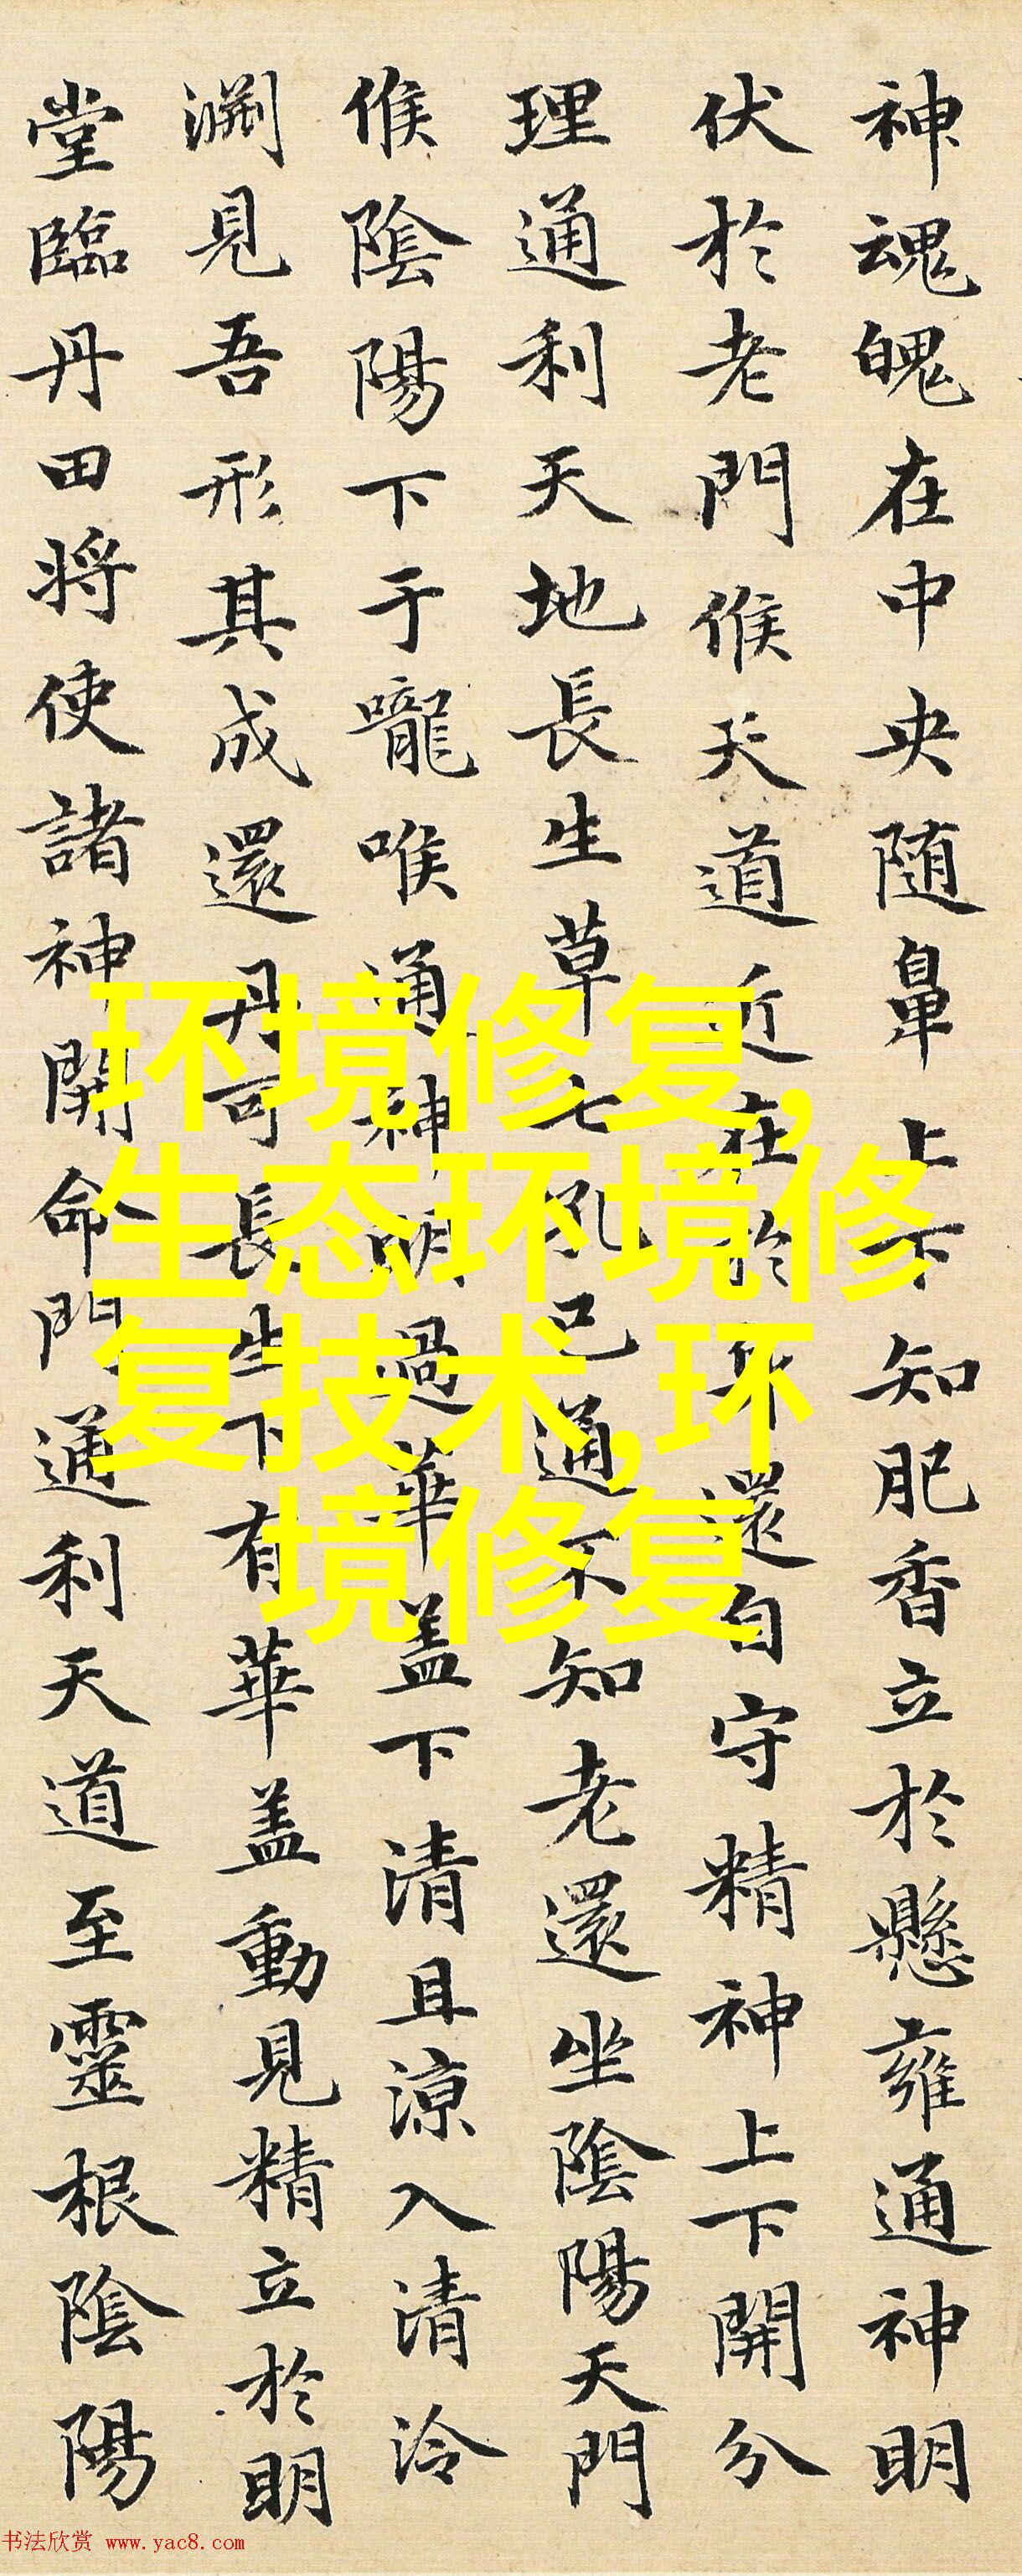 神魂魄在中央随鼻上下知肥香立於懸雍通神明
伏於老門候天道近在於身還自守精神上下開分
理通利天地長生草七孔已通不知老還坐陰陽天門
候陰陽下于嚨喉通神明過華蓋下清且涼入清泠
淵見吾形其成還丹可長生下有華蓋動見精立於明
堂臨丹田将使諸神開命門通利天道至靈根陰陽
环境修复,
生态环境修
复技术,环
境修复
书法欣赏 www.yac8.com